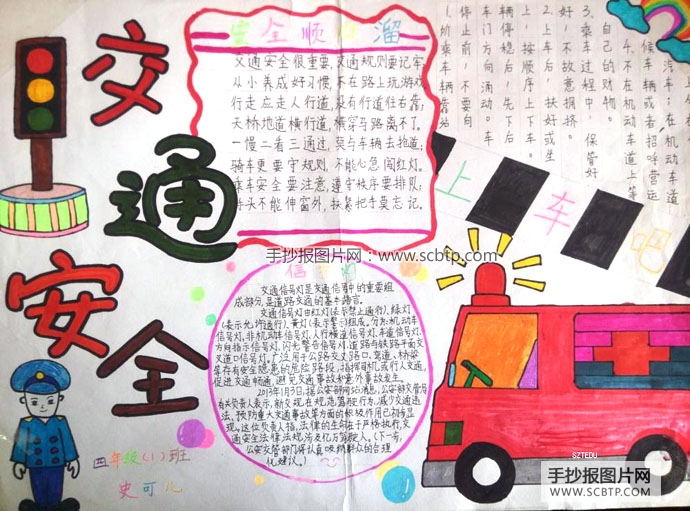 交通安全
安全顺口溜
交通安全很重要,交通规则要记牢,
从小养成好习惯,不在路上玩游戏
行走应走人行道,没有行道往右靠;
天桥地道横行道,横穿马路离不了。
一慢二看三通过,莫与车辆去抢道;
骑车更要守规则,不能心急闯红灯。
乘车安全要注意,遵守秩序要排队;
手头不能伸窗外,扶紧把手莫忘记。
1、
乘车
停止前,不要向
车门方向涌动。车
辆停稳后,先下后
上,按顺序上下车。
2、上车后,扶好或坐
好,不故意拥挤。
3、乘车过程中,保管好
自己的财物。
4、不在机动车道上等
候车辆或者招呼营运
汽车;在机动
上车吧
手抄报图片网:www.scbtp.com
信
灯
交通信号灯是交通信号中的重要组
成部分,是道路交通的基本语言。
交通信号灯由红灯(表示禁止通行)、绿灯
(表示允许通行)、黄灯(表示警示)组成。分为:机动车
信号灯、非机动车信号灯、人行横道信号灯、车道信号灯、
方向指示信号灯、闪光警告信号灯、道路与铁路平面交
叉道口信号灯。广泛用于公路交叉路口、弯道、桥梁
等存有安全隐患的危险路段,指挥司机或行人交通,
促进交通畅通,避免交通事故和意外事故发生。
2013年1月5日,据公安部网站消息,公安部交管局
有关负责人表示,新交规在规范驾驶行为、减少交通违
法、预防重大交通事故等方面的积极作用已初步显
现。这位负责人指,法律的生命在于严格执行,交
通安全法律法规涉及亿万驾驶人。(下一步,
公安交管部门将认真吸纳群众的合理
化建议。)
四年级(1)班
史可儿
SZTEDU
手抄报图片网
WWW.SCBTP.COM